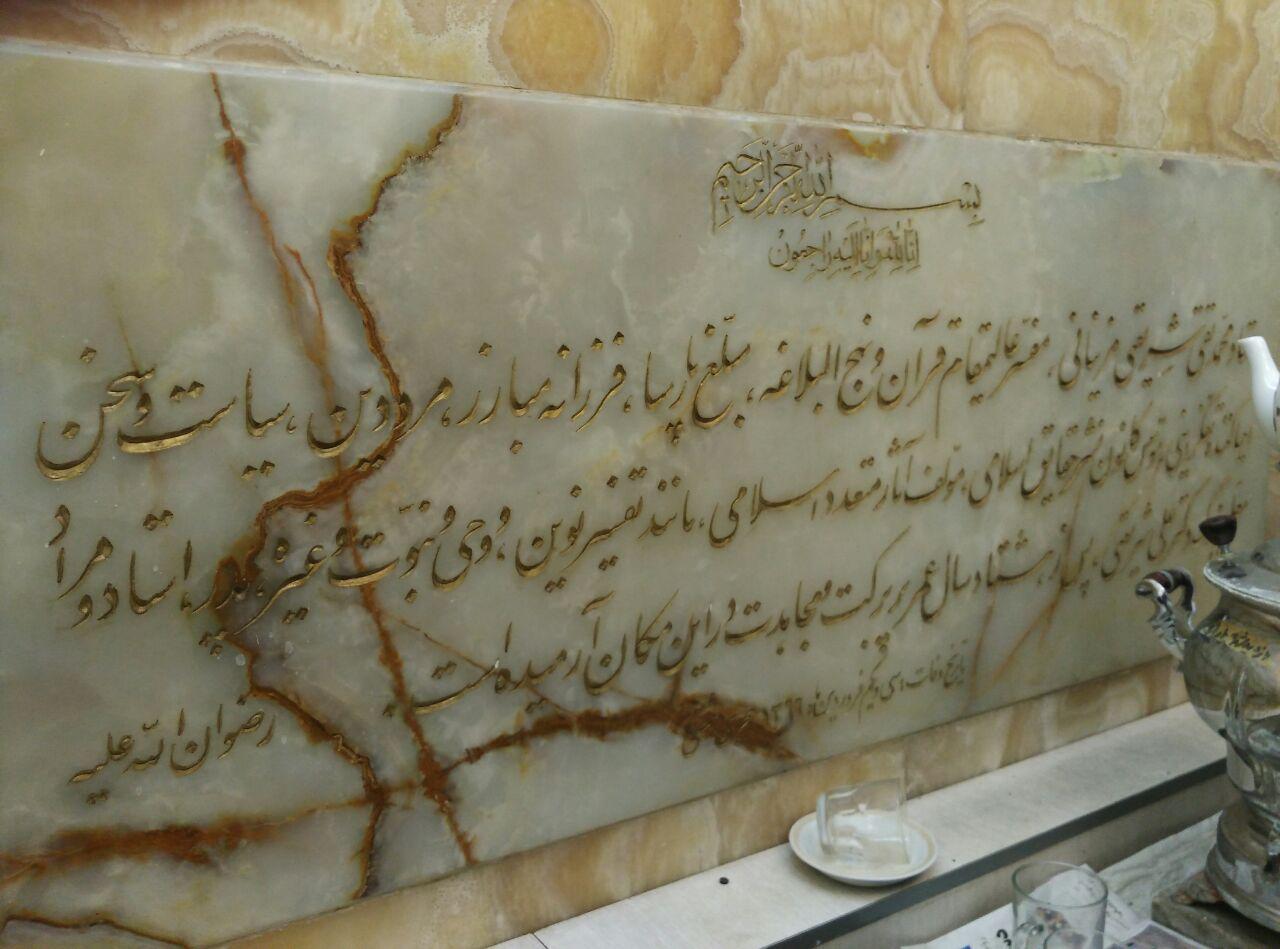 بسم الله الرحمن الرحیم
انا لله و انا الیه راجعون
محمدتقی شریعتی مزینانی، مفسر عالیمقام قرآن و نهج البلاغه، مبلّغ پارسا، فرزانه مبارز، مرد دین، سیاست و سخن
کانون نشر حقایق اسلامی، مؤلف آثار متعدد اسلامی، مانند تفسیر نوین، وحی و نبوّت و غیره، پدر، استاد و مراد
دکتر علی شریعتی، پس از هشتاد سال عمر پر برکت و مجاهدت در این مکان آرمیده است.
تاریخ وفات: سی و یکم فروردین ماه ۱۳۶۶
رضوان الله علیه